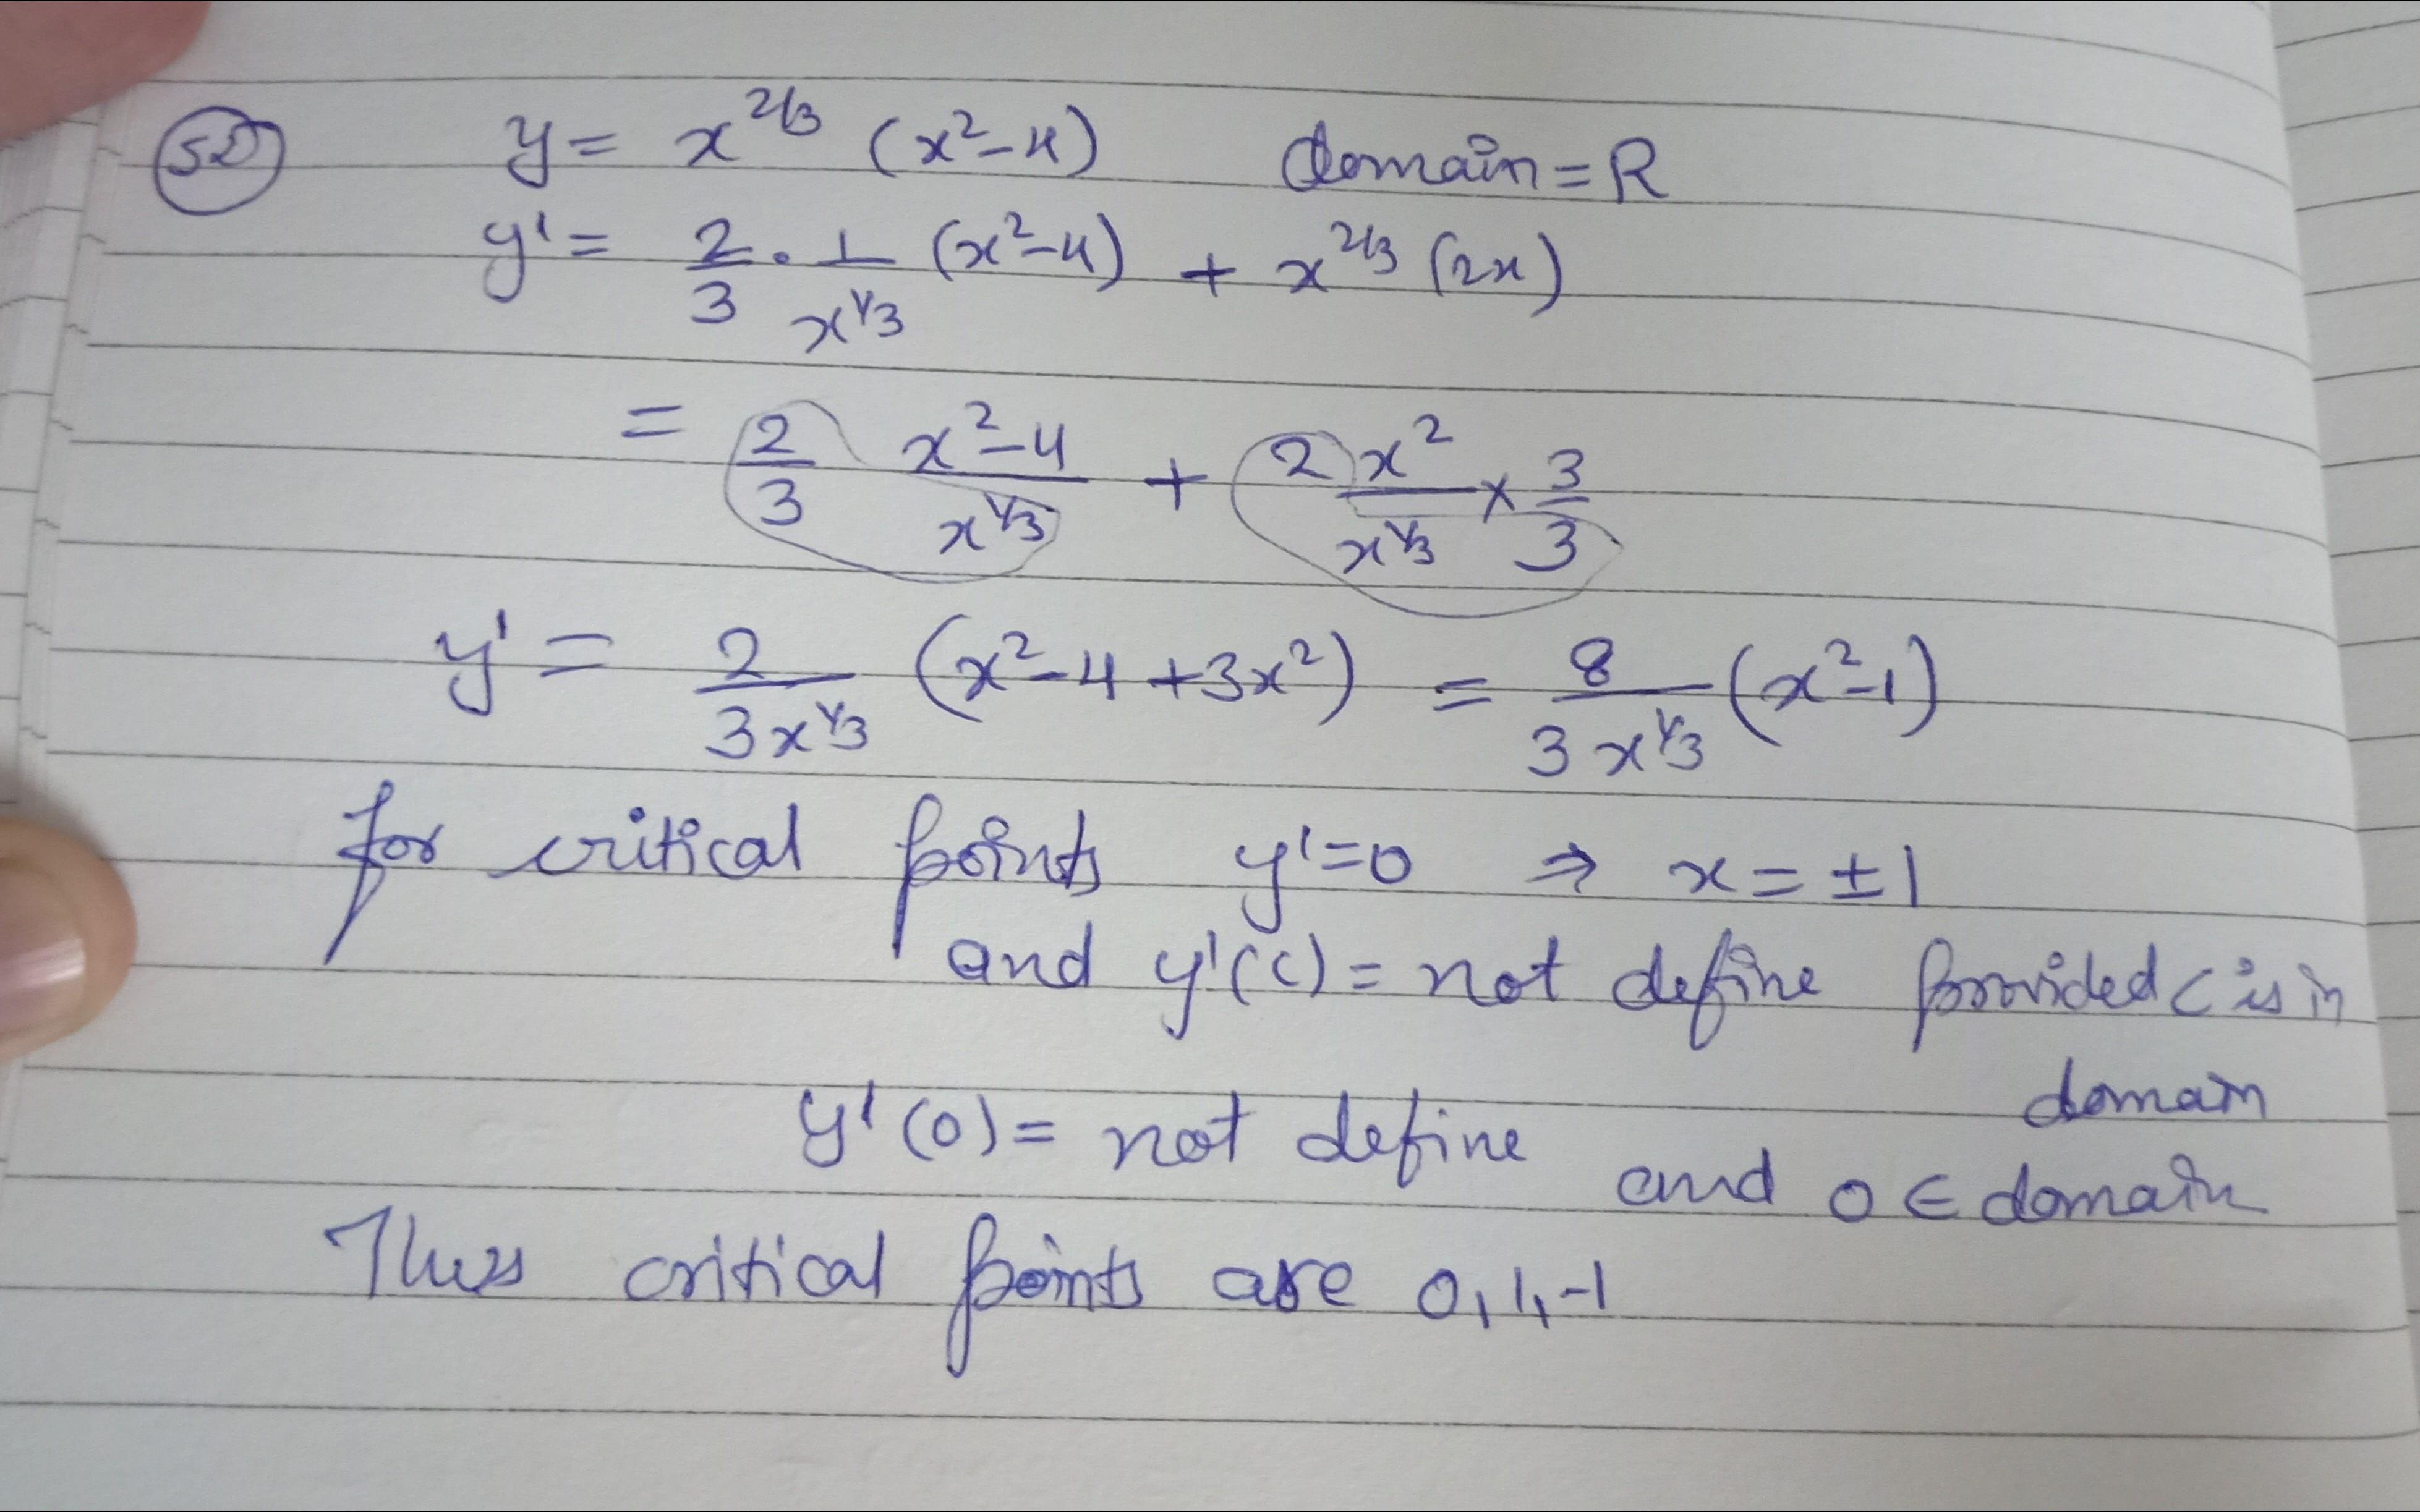 52 y = x^{2/3} (x^2-4) domain = R
y' = \frac{2}{3} \cdot \frac{1}{x^{1/3}} (x^2-4) + x^{2/3} (2x)
= \frac{2}{3} \frac{x^2-4}{x^{1/3}} + \frac{2x^2}{x^{1/3}} \times \frac{3}{3}
y' = \frac{2}{3x^{1/3}} (x^2-4+3x^2) = \frac{8}{3x^{1/3}} (x^2-1)
for critical points y'=0 ⇒ x = ±1
and y'(c) = not define provided c is in
domain
y'(0) = not define and 0 ∈ domain
Thus critical points are 0, 1, -1